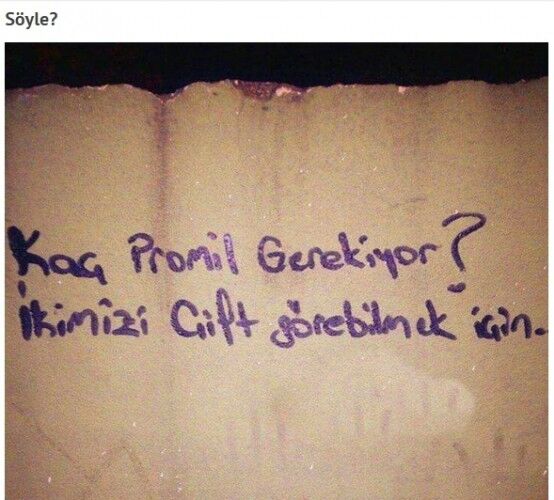 Söyle?
Kaç Promil Gerekiyor?
İkimizi Çift görebilmek için.